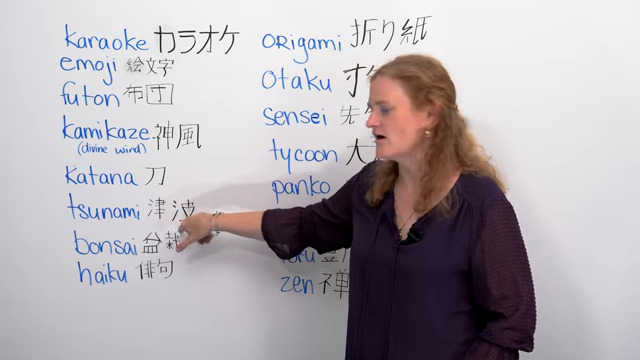 karaoke カラオケ
emoji 絵文字
futon 布団
kamikaze 神風
(divine wind)
katana 刀
tsunami 津波
bonsai 盆栽
haiku 俳句
ORigami 折り紙
Otaku オ
sensei 先
tycoon 大
panko
zen 禅